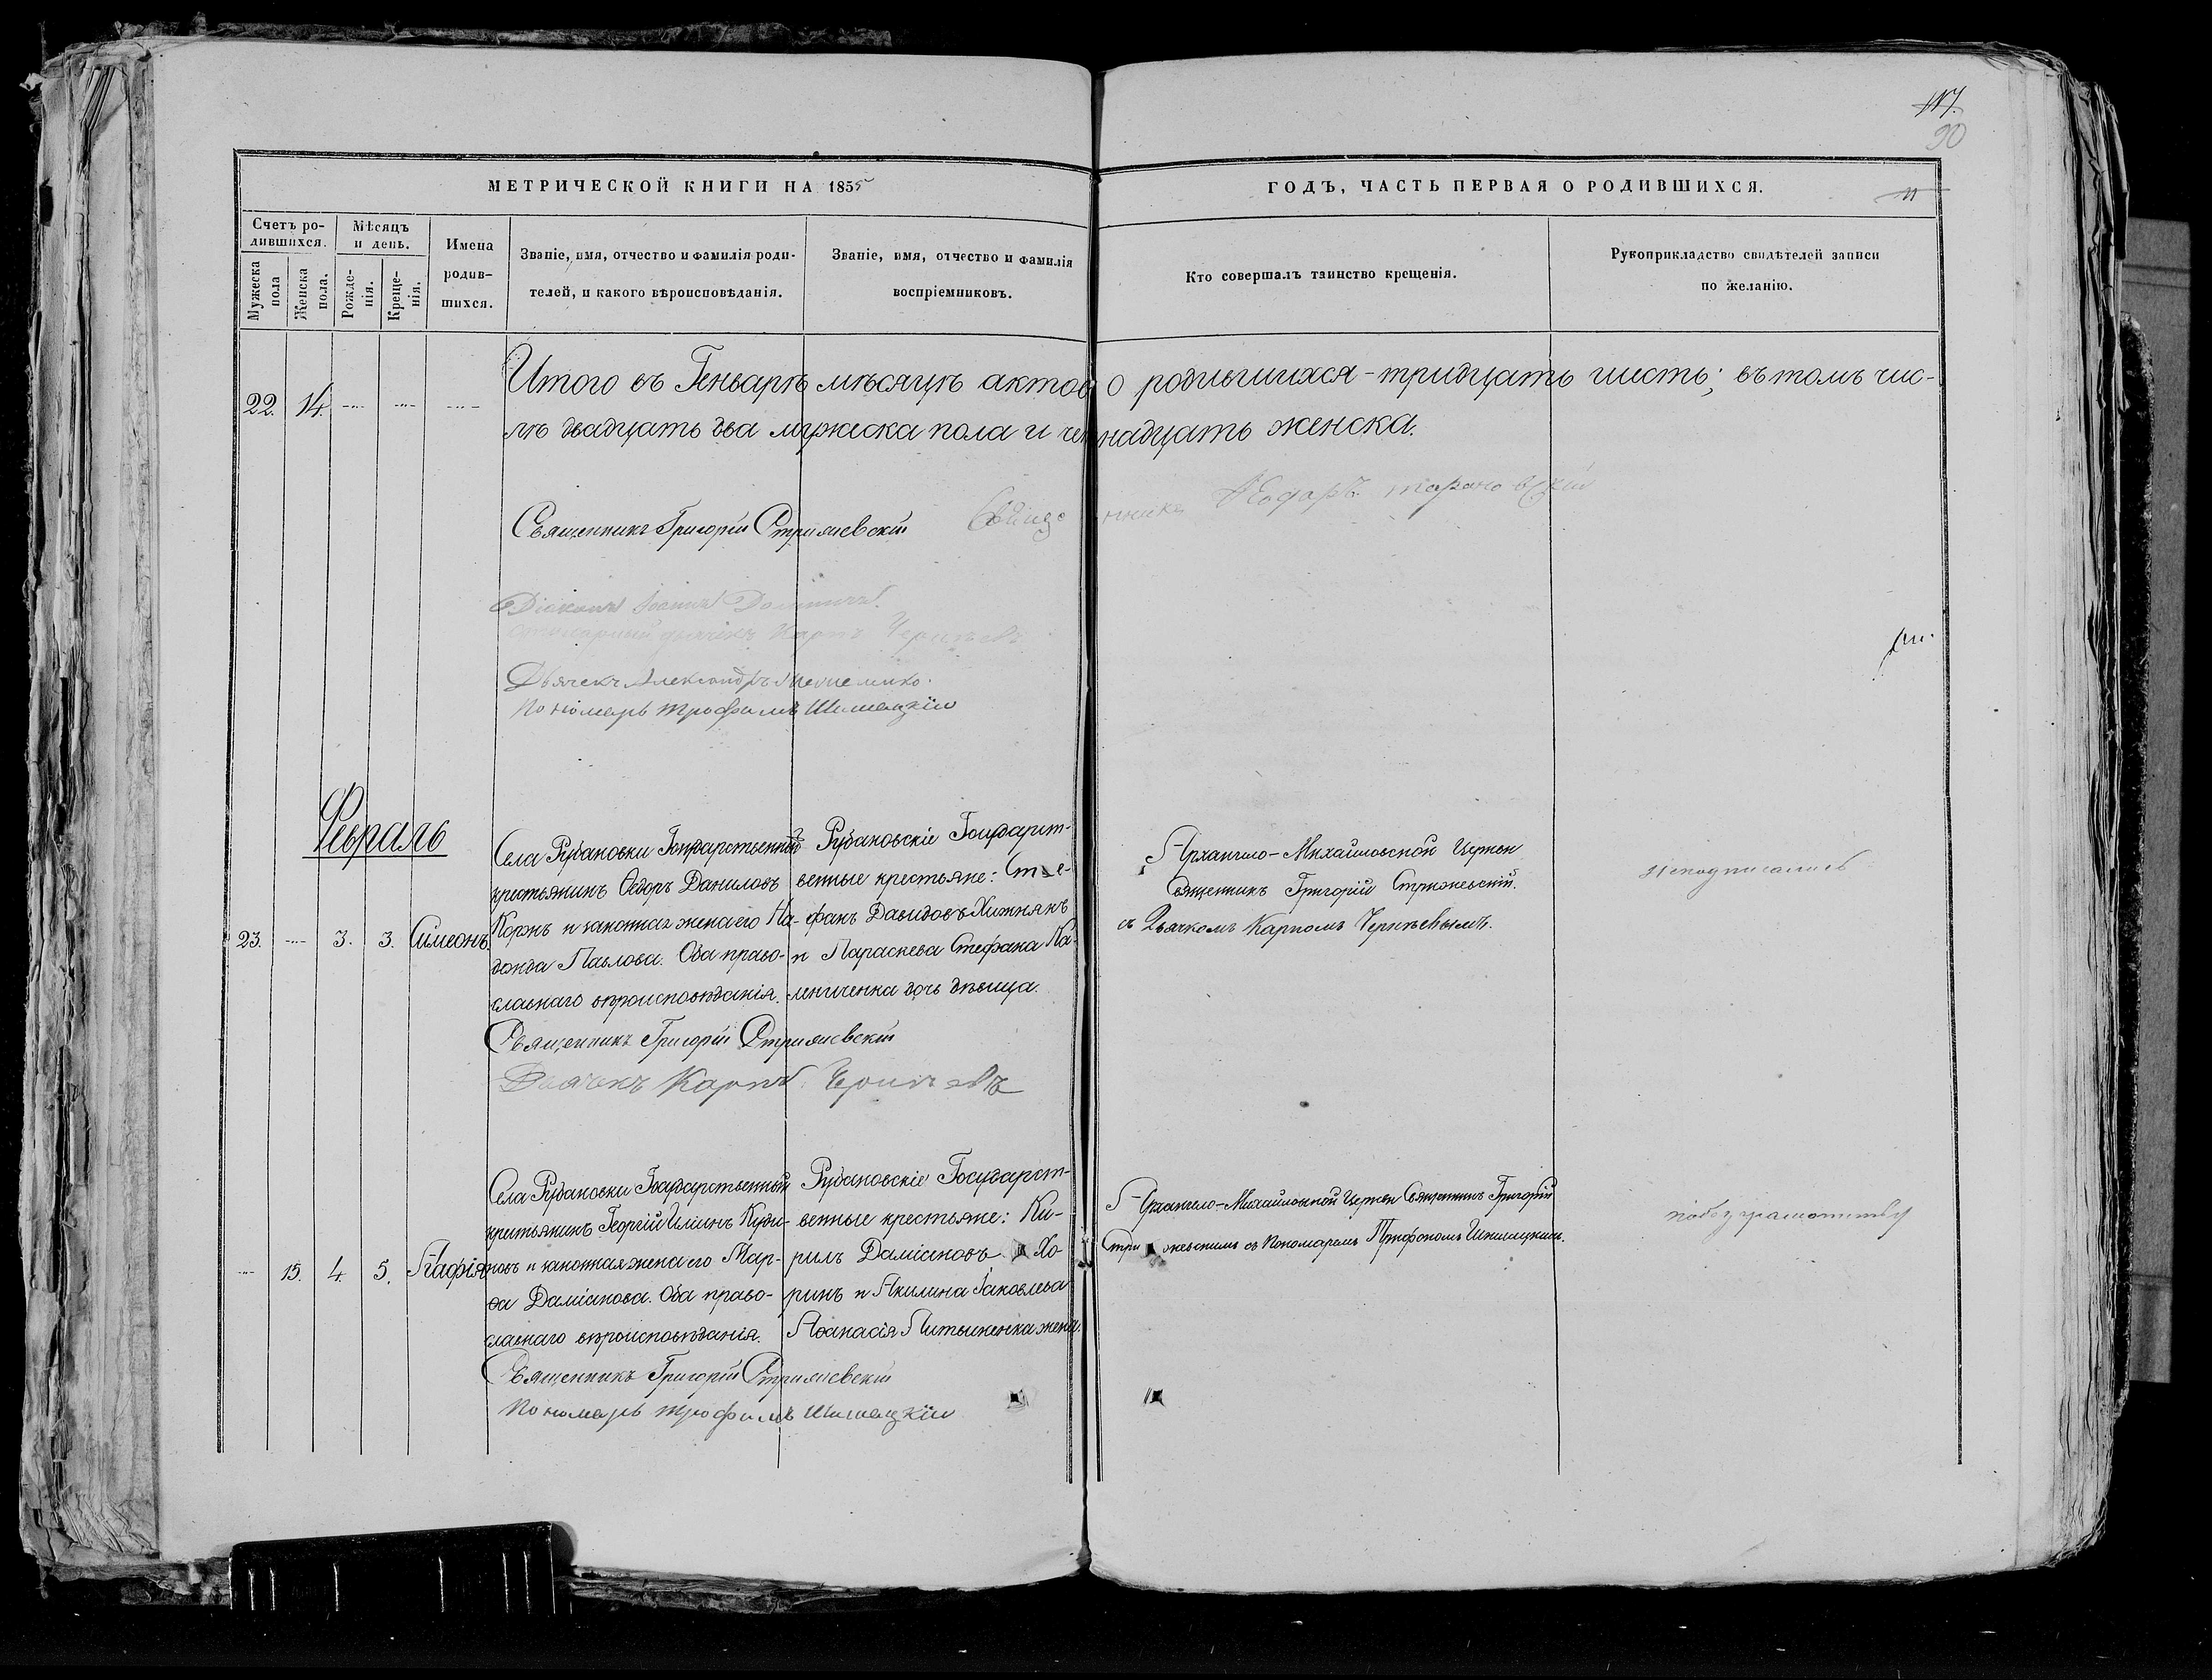 117.
90
МЕТРИЧЕСКОЙ КНИГИ НА 1855
ГОДЪ, ЧАСТЬ ПЕРВАЯ О РОДИВШИХСЯ.
11
Счетъ ро-
дившихся.
Мужеска
пола
Женска
пола.
Мѣсяцъ
и день.
Рожде-
нія.
Креще-
нія.
Имена
родив-
шихся.
Званіе, имя, отчество и фамилія роди-
телей, и какого вѣроисповѣданія.
Званіе, имя, отчество и фамилія
воспріемниковъ.
Кто совершалъ таинство крещенія.
Рукоприкладство свидѣтелей записи
по желанію.
22. 14.
Итого въ Генварѣ мѣсяцѣ актов о родившихся - тридцать шесть; въ томъ чис-
лѣ двадцать два мужеска пола и че надцать женска.
Священникъ Григорій Стрижевскій
Діаконъ Іоаннъ
Карпъ
Дьячекъ Александръ
Пономарь Трофимъ Шишацкій
Февраль
23. 3. 3. Симеонъ.
Села Рубановки Государственный
крестьянинъ Ѳедоръ Даниловъ
Коржъ и законная жена его На-
дежда Павлова. Оба право-
славнаго вѣроисповѣданія.
Рубановскіе Государст-
венные крестьяне: Сте-
фанъ Давидовъ Хижнякъ
и Параскева Стефана Ка-
лениченка дочь дѣвица.
Архангело-Михайловской Церкви
Священникъ Григорій Стрижевскій.
съ Дьячкомъ Карпомъ
Неподписались
Священникъ Григорій Стрижевскій
Дьячекъ Карпъ
15. 4. 5. Агафія
Села Рубановки Государственный
крестьянинъ Георгій Іліинъ Куди-
новъ и законная жена его Мар-
ѳа Даміанова. Оба право-
славнаго вѣроисповѣданія.
Рубановскіе Государст-
венные крестьяне: Ки-
рилъ Даміановъ Хо-
ринъ и Акилина Іаковлева
Аѳанасія Литвиненка жена.
Архангело-Михайловской Церкви Священникъ Григорій
Стрижевскимъ съ Пономаремъ Трофимомъ Шишацкимъ.
по безграмотству
Священникъ Григорій Стрижевскій
Пономарь Трофимъ Шишацкій